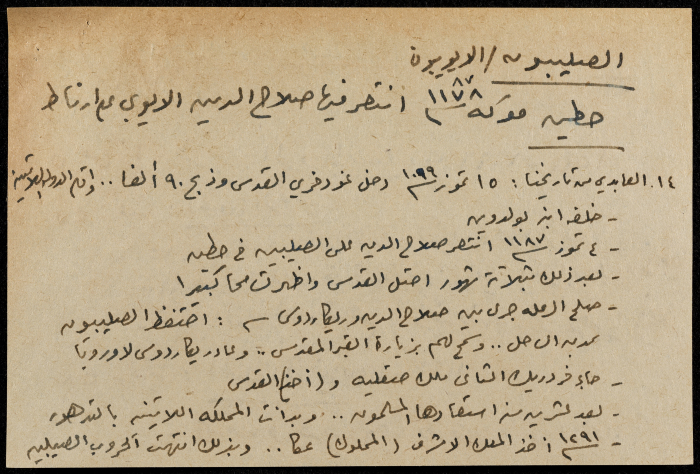 الصليبيون / الايوبيون
حطين موقعة ١١٨٧ انتصر فيها صلاح الدين الايوبي على ارناط
١٤. العابدي من تاريخنا: ١٥ تموز ١٠٩٩ دخل غودفري القدس وذبح ٩٠ ألفا .. واقام الدولة اللاتينية
- خلفه ابن بولدوين
- ٤ تموز ١١٨٧ انتصر صلاح الدين على الصليبيين في حطين
- بعد ذلك بثلاثة شهور احتل القدس واظهر تسامحا كبيرا
- صلح الرملة جرى بين صلاح الدين وريكاردوس : احتفظ الصليبيون
بمدن الساحل .. وسمح لهم بزيارة القبر المقدس .. وغادر ريكاردوس لاوروبا
- جاء فردريك الثاني ملك صقلية و القدس
- بعد عشرين سنة استعادها المسلمون .. وبدأت المملكة اللاتينية بالتدهور
- ١٢٩١ أخذ الملك الاشرف (المملوك) عكا .. وبذلك انتهت الحروب الصليبية